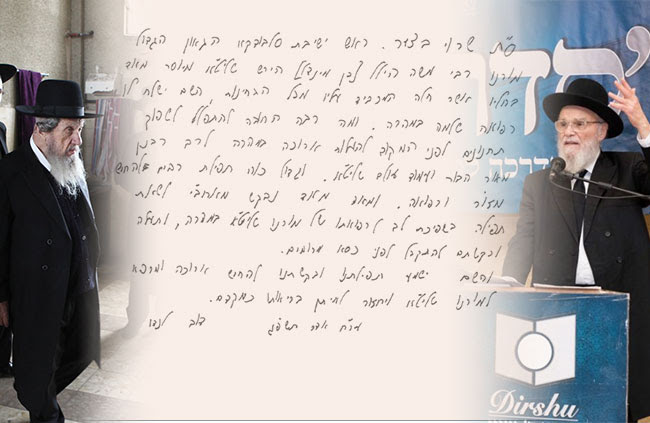 ס"ת שרוי בצער. ראש ישיבת סלבודקא הגאון הגדול
מורנו רבי משה הילל [בן מינדל] הירש שליט"א מיוסר מאד
בחליו אשר חלה המכביד עליו מכל הבחינות, השם ישלח לו
רפואה שלמה במהרה. ומה רבה החובה להתפלל לשפוך
תחנונים לפני המקום להעלות ארוכה במהרה לרב רבנן
מאור הדור ועמוד עולם שליט"א. וגדול כוח תפילת רבים להחיש
מזור ורפואה. ומאוד מאוד נבקש לשאת
תפילה בשפיכת לב לרפואתו של מורנו שליט"א במהרה, ותעלה
בקשתם להתקבל לפני כסא מרומים.
והשם ישמע תפילתנו ובקשתנו להחיש ארוכה ומרפא
למורנו שליט"א ויחזור לאיתן בריאותו כמקדם.
אדר תשפ"ג דוב לנדו
Dirshu